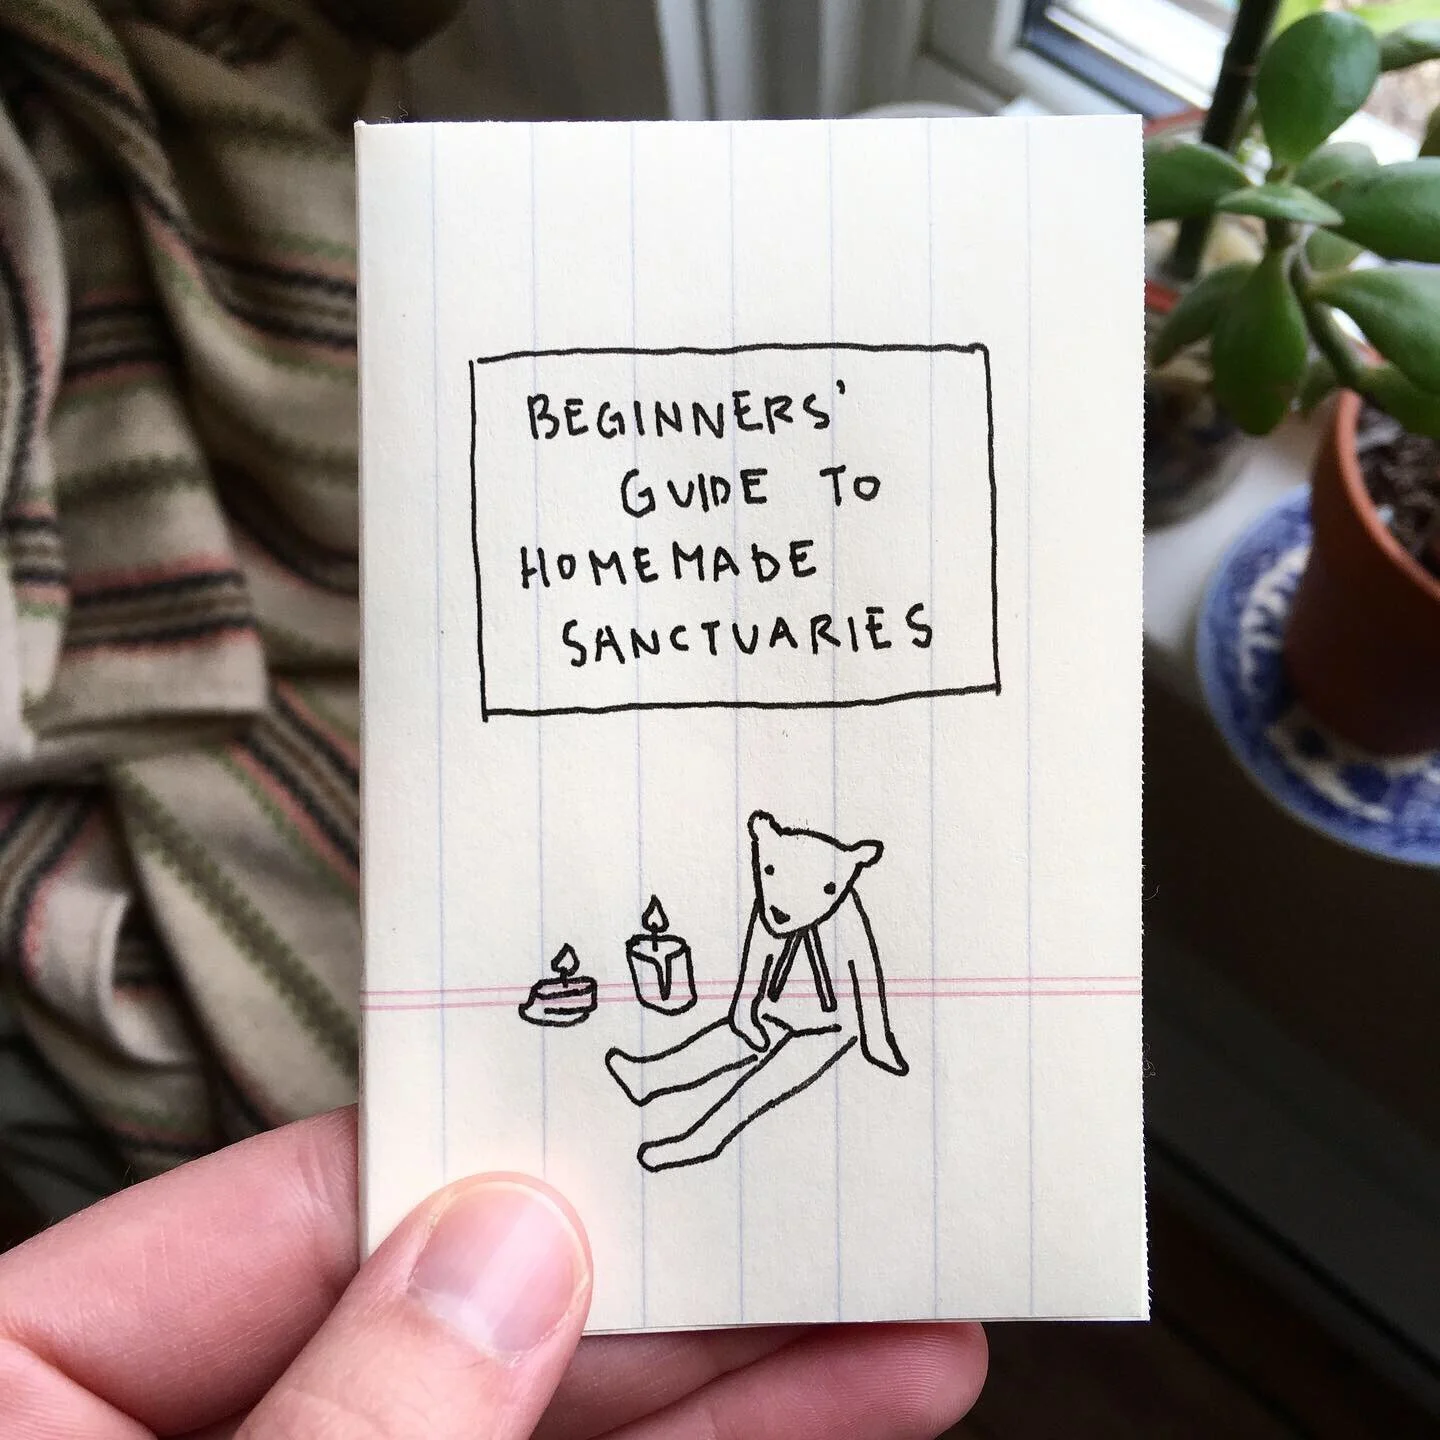 BEGINNERS'
GUIDE TO
HOMEMADE
SANCTUARIES